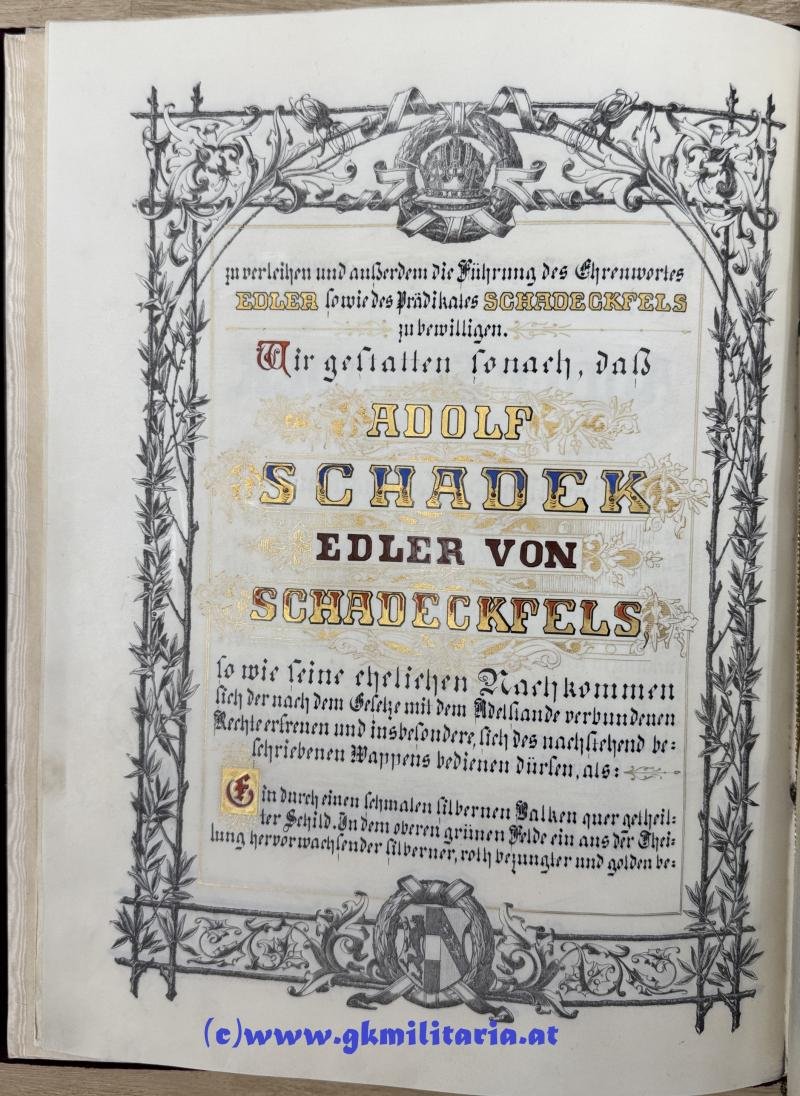 zu verleihen und außerdem die Führung des Ehrenwortes
EDLER sowie des Prädikates SCHADECKFELS
zu bewilligen.
Wir gestatten sonach, daß
ADOLF
SCHADEK
EDLER VON
SCHADECKFELS,
so wie seine ehelichen Nachkommen
sich der nach dem Gesetze mit dem Adelstande verbundenen
Rechte erfreuen und insbesondere, sich des nachstehend be-
schriebenen Wappens bedienen dürfen, als:
Ein durch einen schmalen silbernen Balken quer getheil-
ter Schild. In dem oberen grünen Felde ein aus der Thei-
lung hervorwachsender silberner, roth bezungter und golden be-
(c)www.gkmilitaria.at